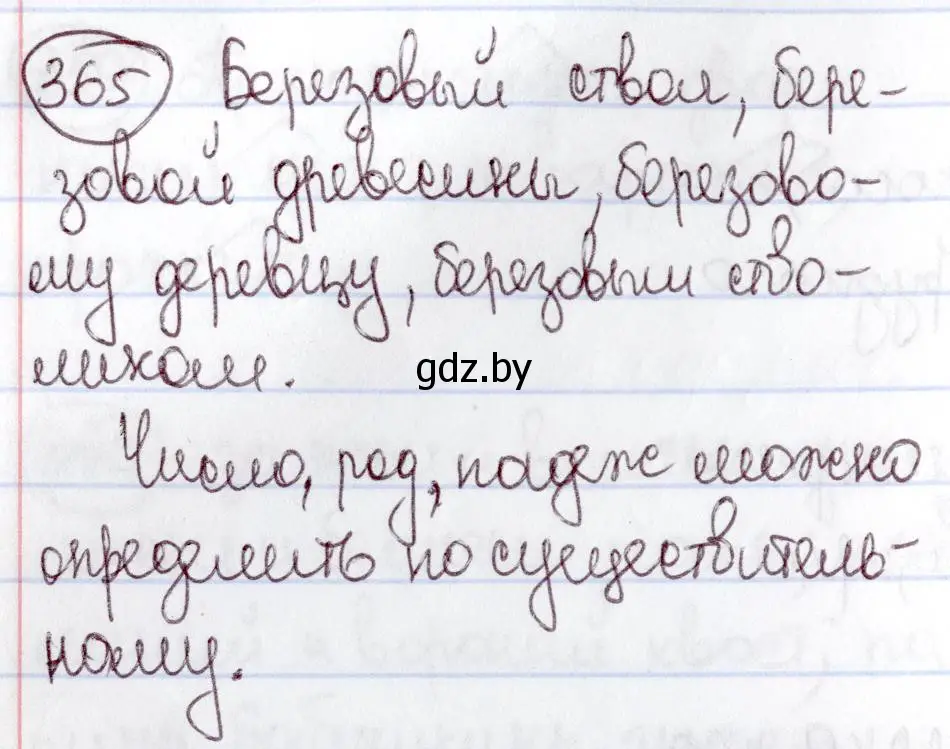 365 Березовый ствол, бере-
зовой древесины, березово-
му деревцу, березовым ство-
ликом.
gdz.by
Число, род, падеж можно
определить по существитель-
ному.